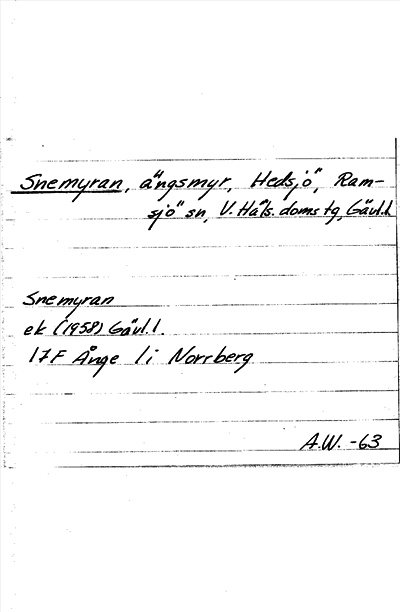 Snemyran, ängsmyr, Hedsjö, Ram-
sjö sn, V. Häls. doms tg, Gävl.l.
Snemyran
ek (1958) Gävl.l.
17F Ånge 1i Norrberg
A.W. -63